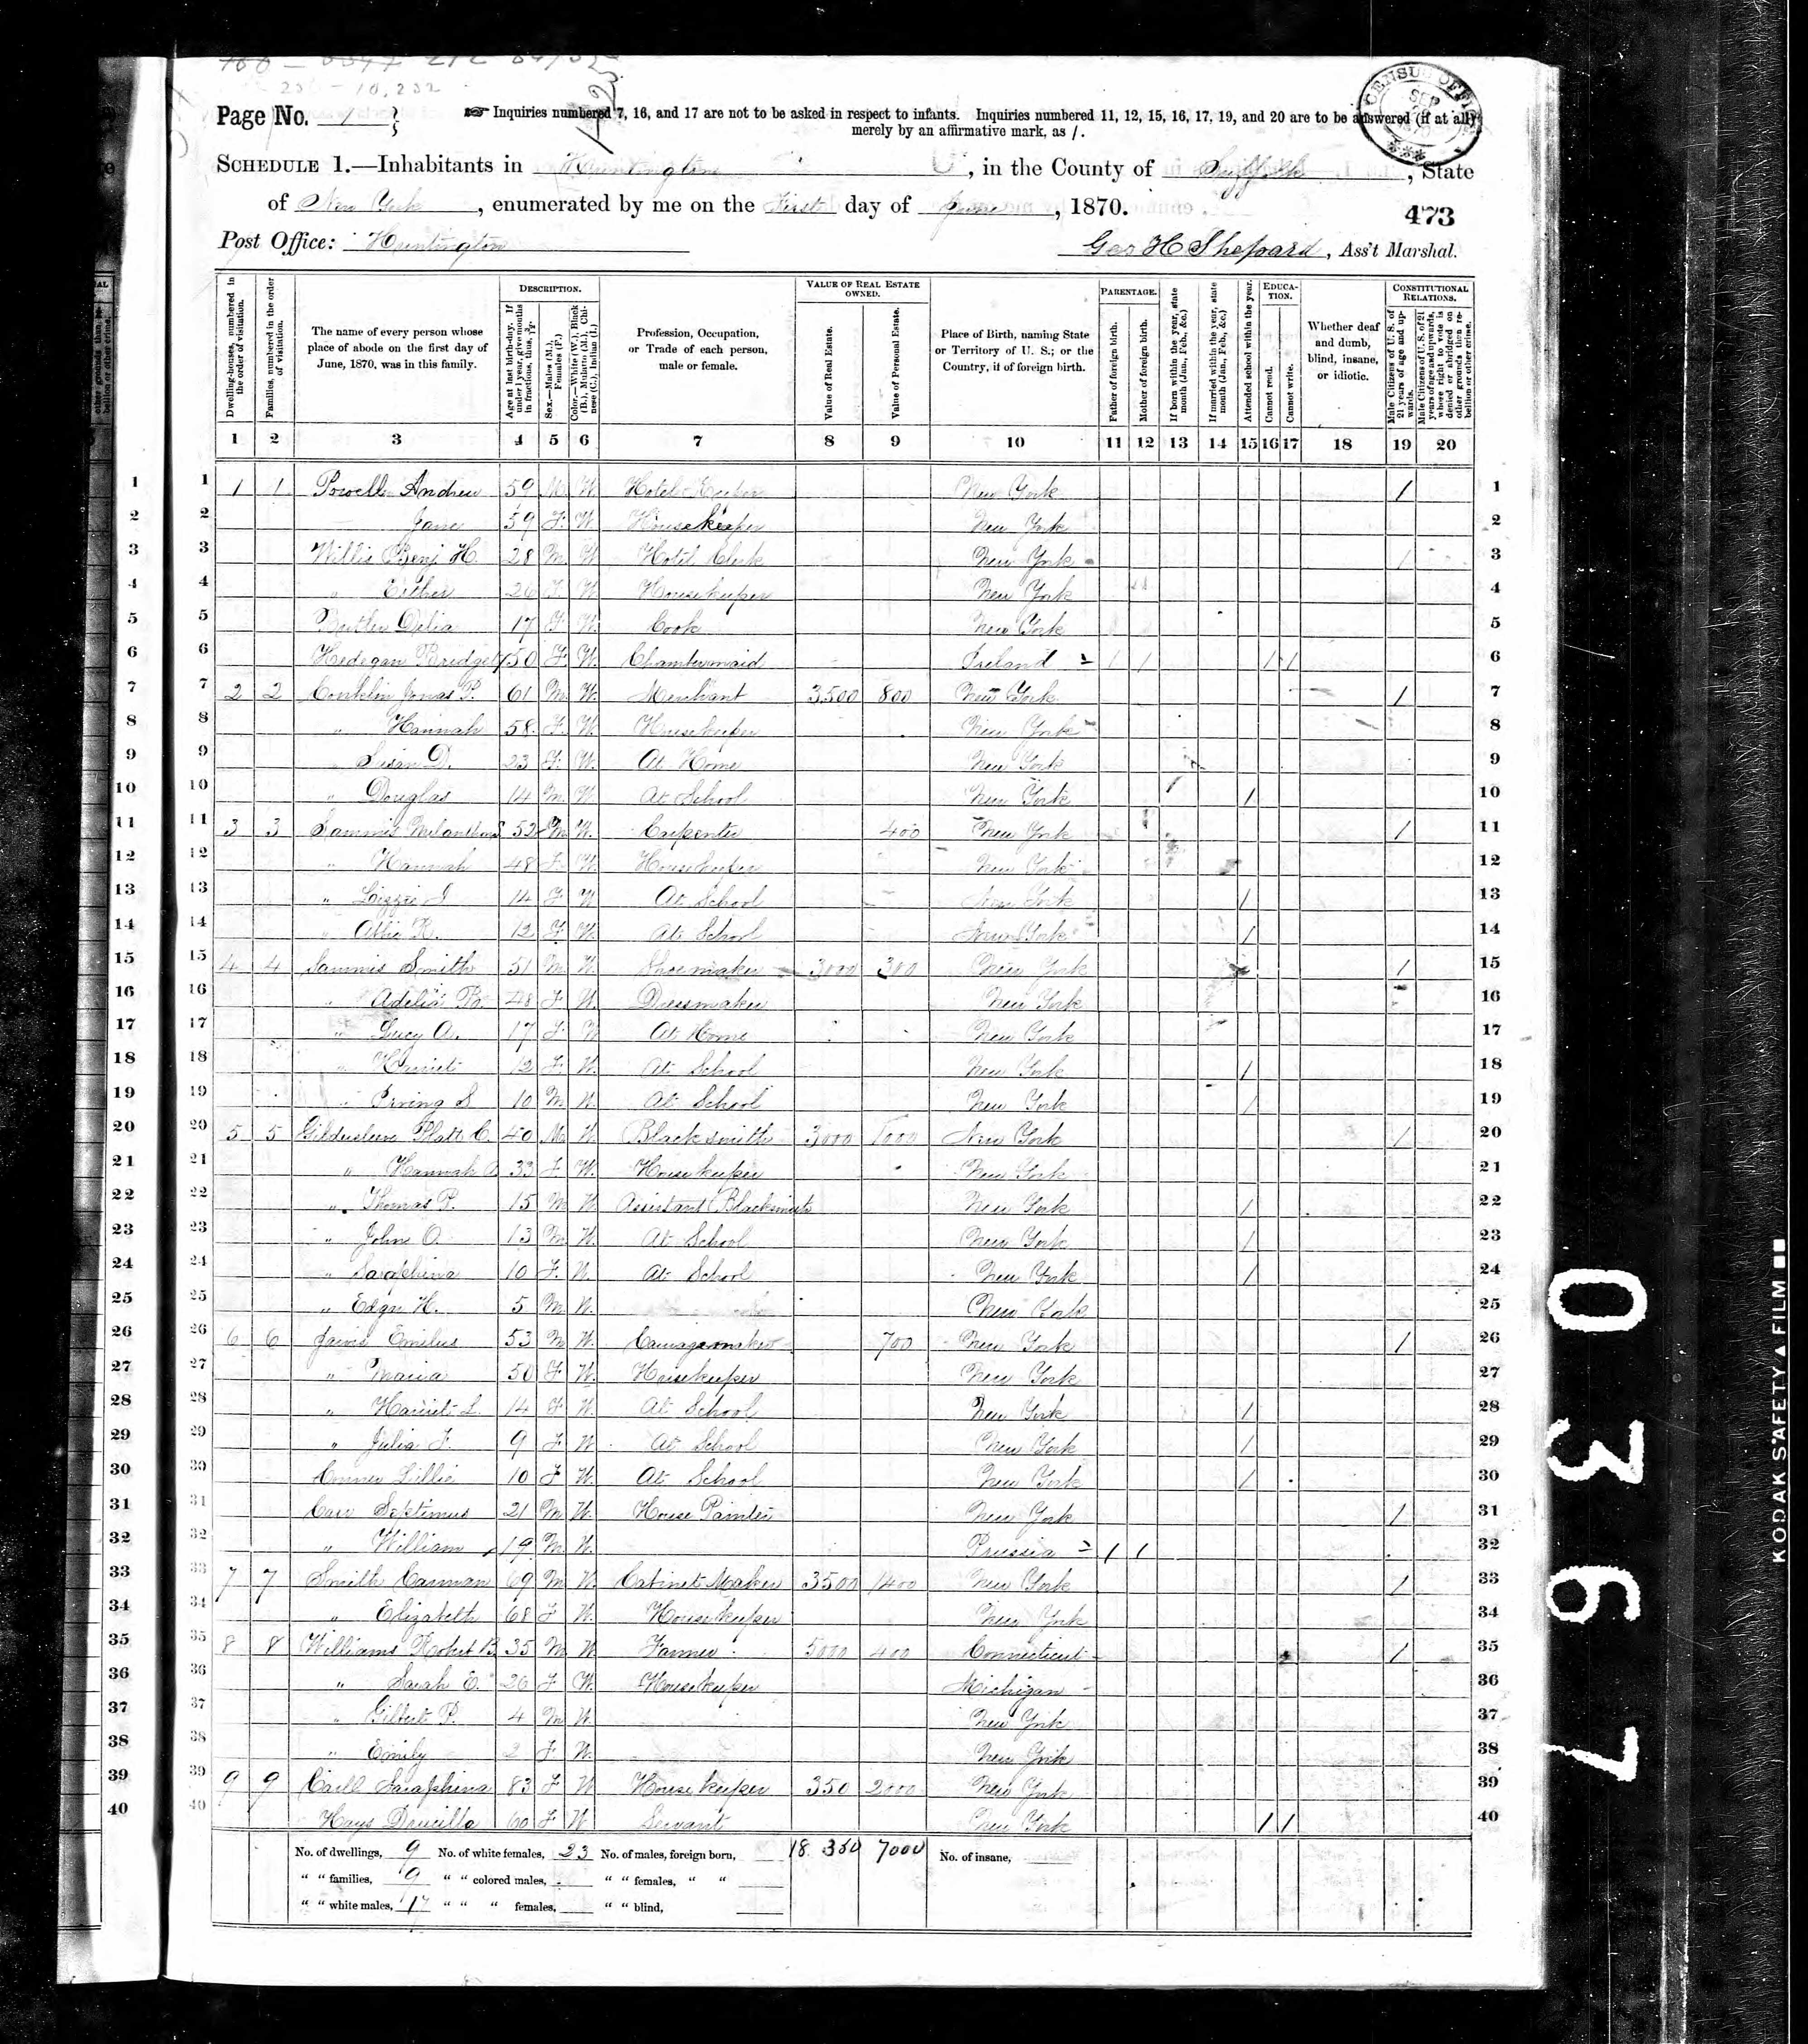 Page No. 1
Inquiries numbered 7, 16, and 17 are not to be asked in respect to infants. Inquiries numbered 11, 12, 15, 16, 17, 19, and 20 are to be answered (if at all)
merely by an affirmative mark, as /.
CENSUS OFFICE
SEP
473
SCHEDULE 1.—Inhabitants in Huntington, in the County of Suffolk, State
of New York, enumerated by me on the First day of June, 1870.
Post Office: Huntington
Geo H Shepard, Ass't Marshal.
Dwelling-houses, numbered in the order of visitation.
Families, numbered in the order of visitation.
The name of every person whose place of abode on the first day of June, 1870, was in this family.
DESCRIPTION.
Age at last birth-day. If under 1 year, give months in fractions, thus, 3/12
Sex.—Males (M.), Females (F.)
Color.—White (W.), Black (B.), Mulatto (M.), Chinese (C.), Indian (I.)
Profession, Occupation, or Trade of each person, male or female.
VALUE OF REAL ESTATE OWNED.
Value of Real Estate.
Value of Personal Estate.
Place of Birth, naming State or Territory of U. S.; or the Country, if of foreign birth.
PARENTAGE.
Father of foreign birth.
Mother of foreign birth.
If born within the year, state month (Jan., Feb., &c.)
If married within the year, state month (Jan., Feb., &c.)
Attended school within the year.
EDUCATION.
Cannot read.
Cannot write.
Whether deaf and dumb, blind, insane, or idiotic.
CONSTITUTIONAL RELATIONS.
Male Citizens of U. S. of 21 years of age and upwards.
Male Citizens of U. S. of 21 years of age and upwards, where right to vote is denied or abridged on other grounds than rebellion or other crime.
1 2 3 4 5 6 7 8 9 10 11 12 13 14 15 16 17 18 19 20
1 1 1 Powell Andrew 59 M W. Hotel Keeper New York / 1
2 Jane 59 F. W. Housekeeper New York 2
3 Willis Benj H. 28 M W. Hotel Clerk New York / 3
4 " Esther 26 F. W. Housekeeper New York 4
5 Delia 17 F W. Cook New York 5
6 Hedegan Bridget 50 F. W. Chambermaid Ireland / / / / 6
7 2 2 Conklin Jonas P. 61 M W. Merchant 3500 800 New York / 7
8 " Hannah 58 F. W. Housekeeper New York 8
9 " Susan D. 23 F. W. At Home New York 9
10 " Douglas 14 M. W. At School New York / 10
11 3 3 Sammis 52 M W. Carpenter 400 New York / 11
12 " Hannah 48 F. W. Housekeeper New York 12
13 " Lizzie J 14 F W At School New York / 13
14 " Abbie R. 12 F. W. At School New York / 14
15 4 4 Sammis Smith 51 M. W. Shoemaker 3000 300 New York / 15
16 " Adelia 48 F W. Dressmaker New York 16
17 " Lucy A. 17 F. W At Home New York 17
18 " Harriet 12 F. W. At School New York / 18
19 " Irving S 10 M W. At School New York / 19
20 5 5 Gildersleeve Platt C. 40 M. W. Blacksmith 3000 1000 New York / 20
21 " Hannah 33 F W. Housekeeper New York 21
22 " Thomas P. 15 M W. Assistant Blacksmith New York / 22
23 " John O. 13 M W. At School New York / 23
24 " Saraphina 10 F. W. At School New York / 24
25 " Edgr H. 5 M W. New York 25
26 6 6 Jarvis Emilius 53 M W. Carriagemaker 700 New York / 26
27 " Maria 50 F W. Housekeeper New York 27
28 " Harriet L. 14 F W. At School New York / 28
29 " Julia F. 9 F W. At School New York / 29
30 Lillie 10 F W. At School New York / 30
31 Septimus 21 M W. House Painter New York / 31
32 " William 19 M W. Prussia / / 32
33 7 7 Smith Carman 69 M W. Cabinet Maker 3500 1400 New York / 33
34 " Elizabeth 68 F W. Housekeeper New York 34
35 8 8 Williams Robert B. 35 M W. Farmer 5000 400 Connecticut / 35
36 " Sarah E. 26 F W. Housekeeper Michigan 36
37 " Gilbert P. 4 M W. New York 37
38 " Emily 2 F W. New York 38
39 9 9 Carll Saraphina 83 F W House keeper 350 2000 New York 39
40 Hays Drucilla 60 F W Servant New York / / 40
No. of dwellings, 9 No. of white females, 23 No. of males, foreign born, 18 350 7000 No. of insane,
" " families, 9 " " colored males, " " females, " "
" " white males, 17 " " " females, " " blind,
0367
KODAK SAFETY FILM